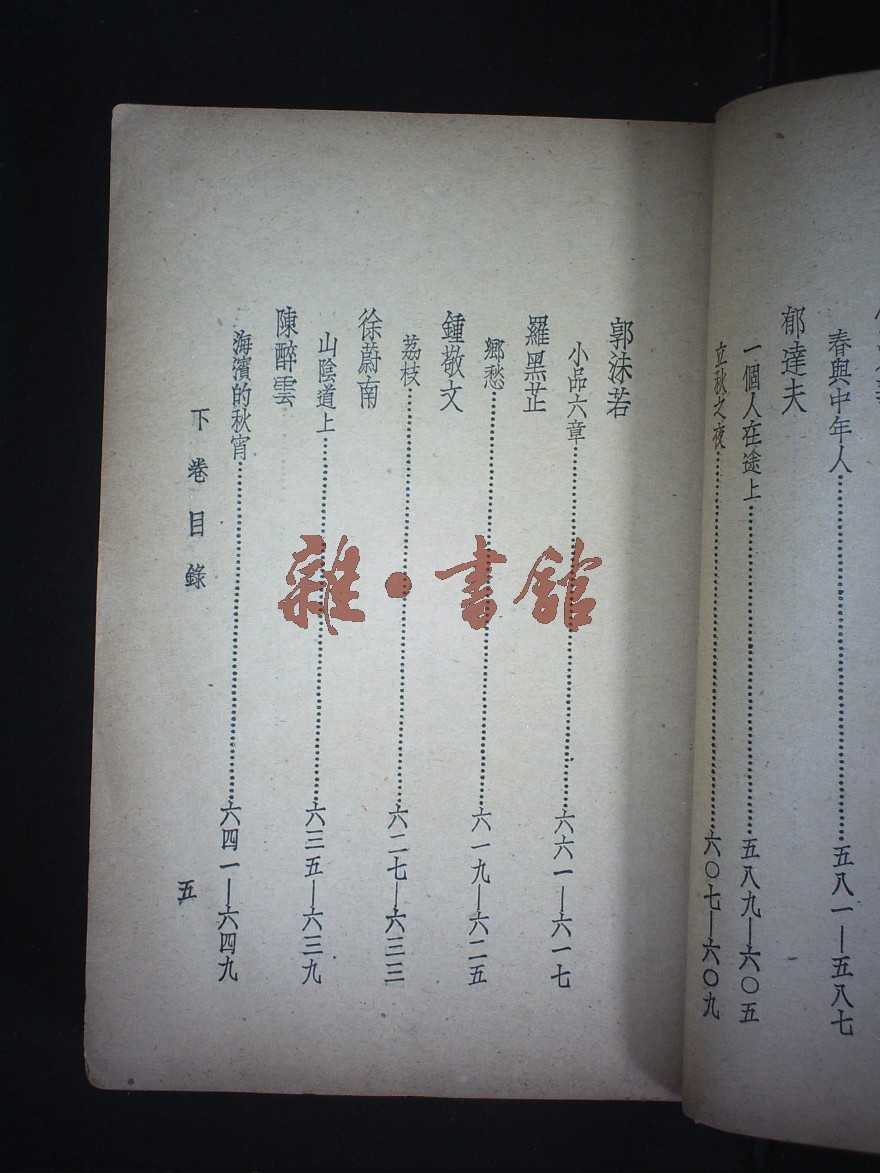 春與中年人……五八一—五八七
郁達夫
一個人在途上……五八九—六〇五
立秋之夜……六〇七—六〇九
郭沫若
小品六章……六六一—六一七
羅黑芷
鄉愁……六一九—六二五
鍾敬文
荔枝……六二七—六三三
徐蔚南
山陰道上……六三五—六三九
陳醉雲
海濱的秋宵……六四一—六四九
下卷目錄
五
雜·書館